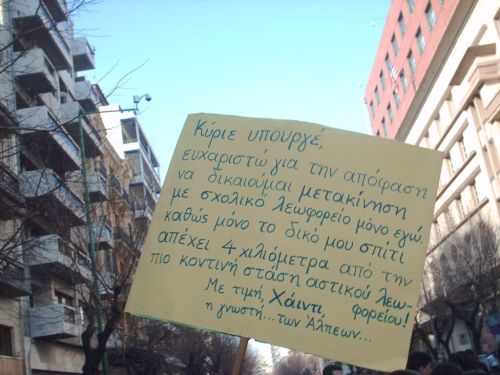 Κύριε υπουργέ,
ευχαριστώ για την απόφαση
να δικαιούμαι μετακίνηση
με σχολικό λεωφορείο μόνο εγώ,
καθώς μόνο το δικό μου σπίτι
απέχει 4 χιλιόμετρα από την
πιο κοντινή στάση αστικού λεω-
φορείου!
Με τιμή, Χάιντι,
η γνωστή...των Άλπεων...